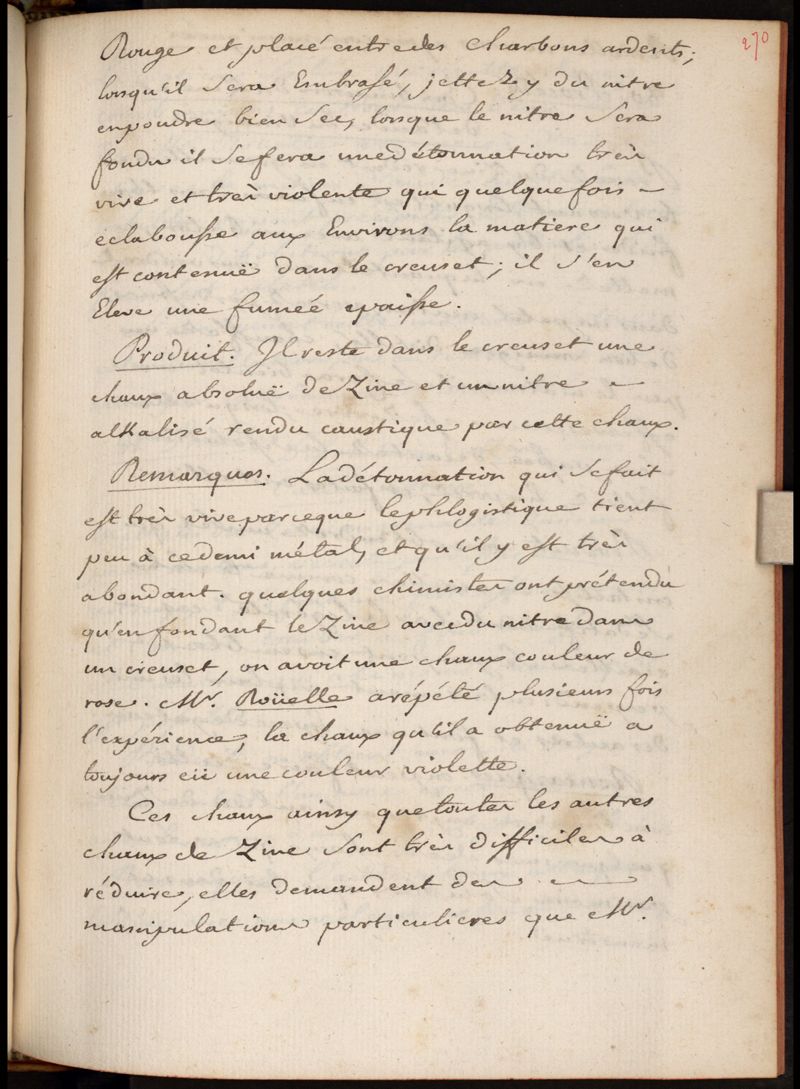 270
Rouge et placé entre des charbons ardents;
lorsqu'il Sera Embrasé, jettez y du nitre
en poudre bien Sec, lorsque le nitre Sera
fondu il Se fera une détonnation très
vive et très violente qui quelque fois –
eclabousse aux Environs la matiere qui
est contenuë dans le creuset; il s'en
Eleve une fumeé epaisse.
Produit. Il reste dans le creuset une
chaux absoluë de Zinc et un nitre –
alkalisé rendu caustique par cette chaux.
Remarques. La détonnation qui Se fait
est très vive parceque le phlogistique tient
peu à ce demi métal, et qu'il y est très
abondant. quelques chimistes ont prétendu
qu'en fondant le Zinc avec du nitre dans
un creuset, on avoit une chaux couleur de
rose. Mr. Roüelle a répété plusieurs fois
l'expérience, la chaux qu'il a obtenuë a
toujours eü une couleur violette.
Ces chaux ainsy que toutes les autres
chaux de Zinc Sont très difficiles à
réduire, elles demandent des –
manipulations particulieres que Mr.